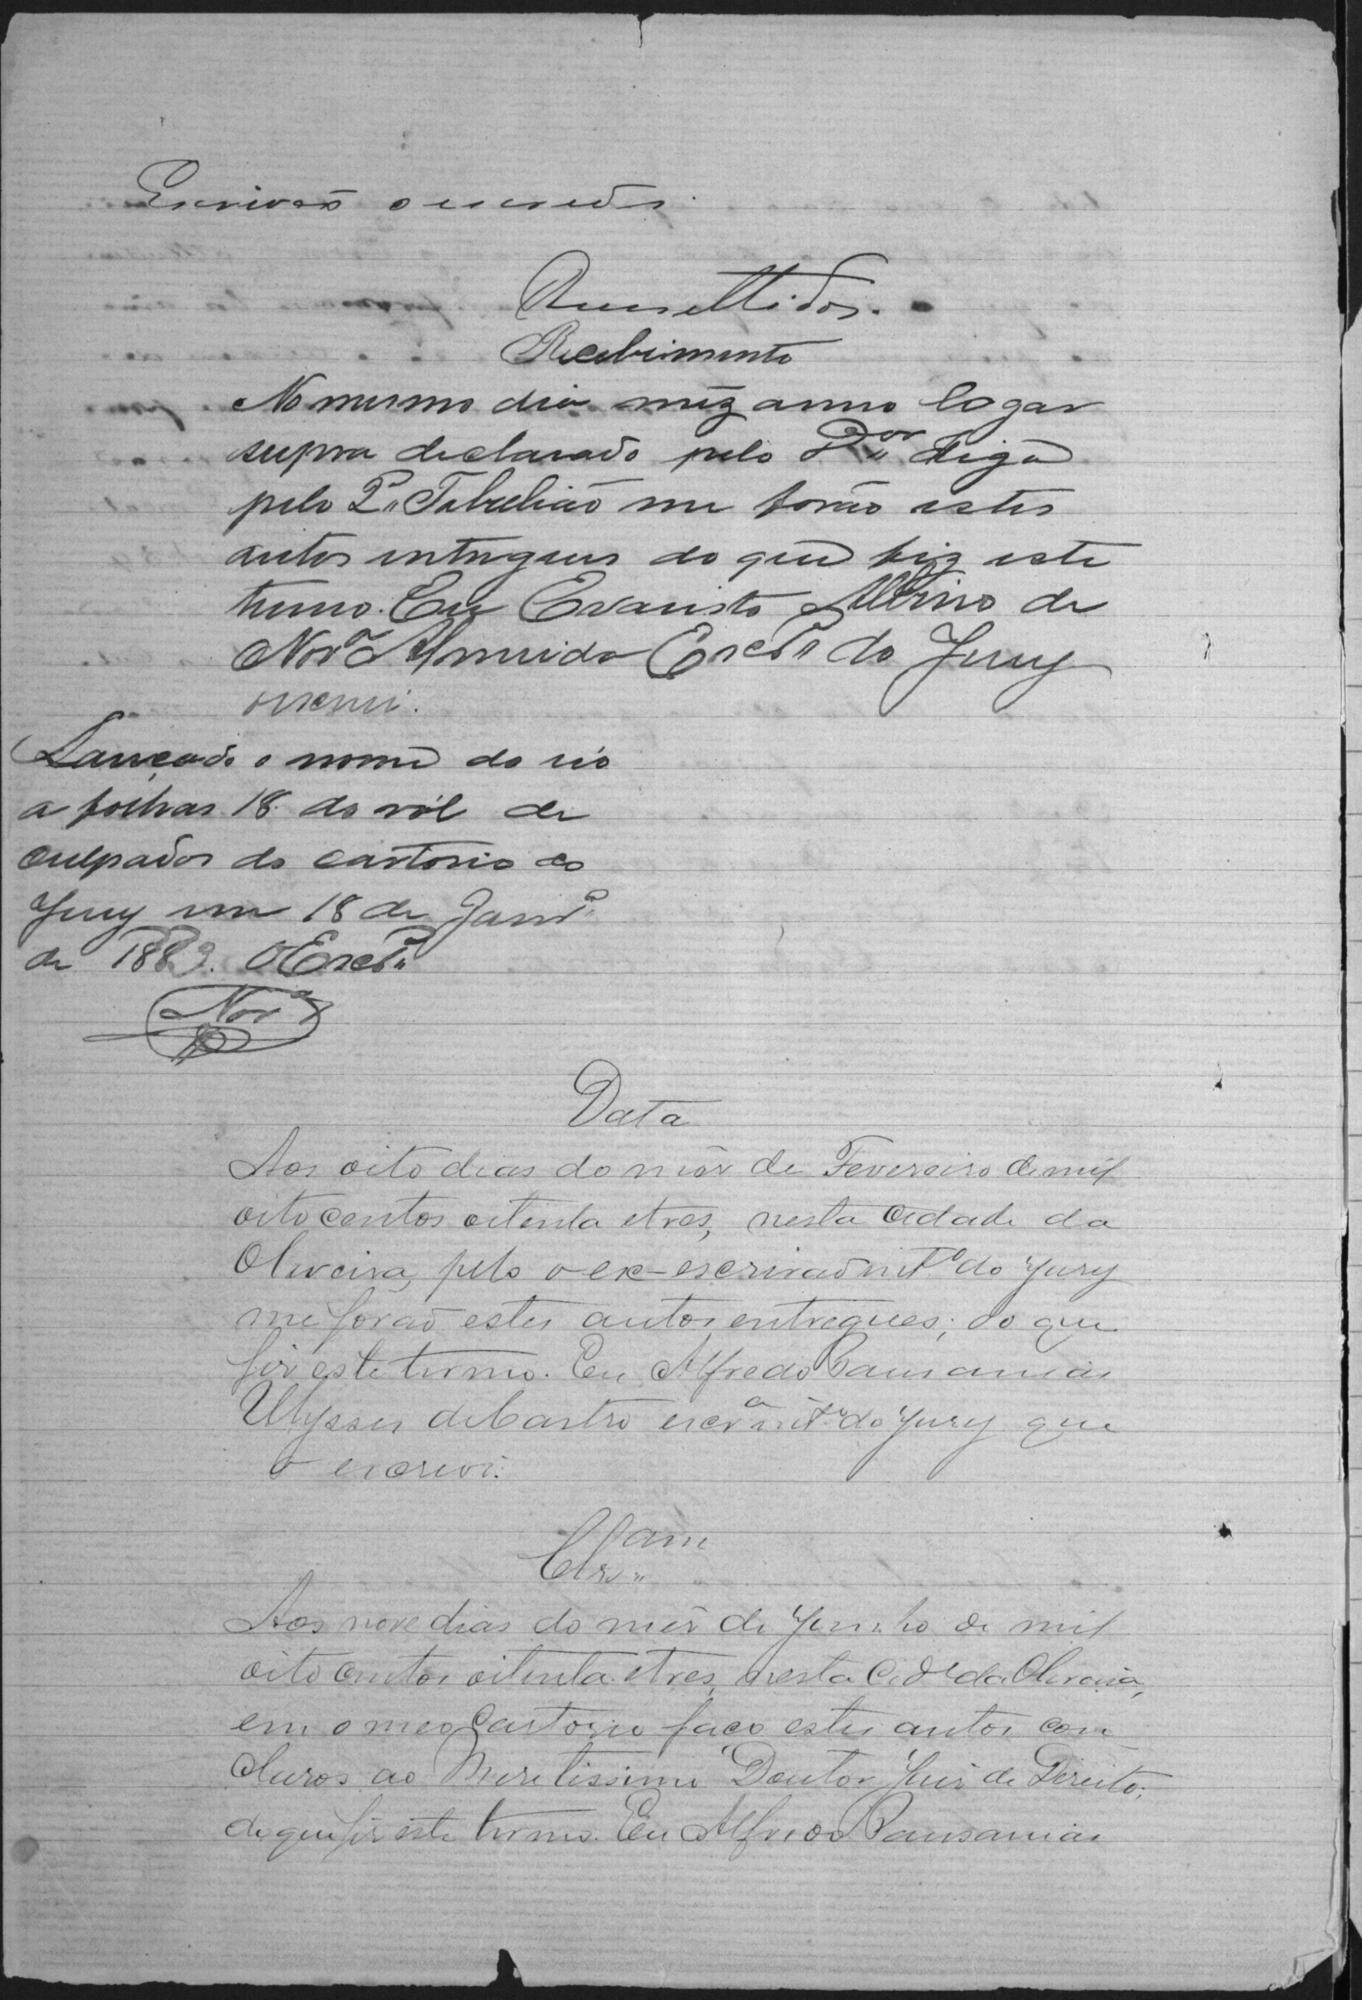 Escrivaõ o escrevi.
Remettidos.
Recebimento
No mesmo dia mêz anno logar
supra declarado pelo Dor. digo
pelo 2º Tabelliaõ me foraõ estes
autos entregues do que fiz este
termo. Eu Evaristo Albino de
Norª Almeida Escrº do Jury
o escrevi.
Lançado o nome do réo
a folhas 18 do rol de
culpados do cartorio do
Jury em 18 de Janrº
de 1883. O Escrº
Norª
Data
Aos oito dias do mês de Fevereiro de mil
oito centos oitenta e tres, nesta cidade da
Oliveira, pelo o ex-escrivaõ intº do Jury
me foraõ estes autos entregues; do que
fiz este termo. Eu Alfredo Pausanias
Ulysses de Castro escram intº do Jury que
o escrevi.
Clsam
Aos nove dias do mês de Junho de mil
oito centos oitenta e tres, nesta Cidde da Oliveira,
em o meo Cartorio faço estes autos con
clusos ao Meretissimo Doutor Juis de Direito;
do que fiz este termo. Eu Alfredo Pausanias